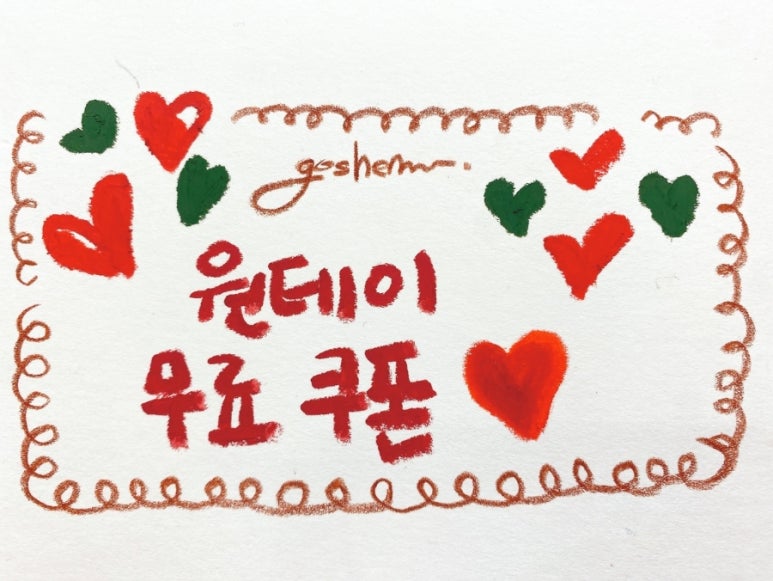 goshen
원데이
무료 쿠폰